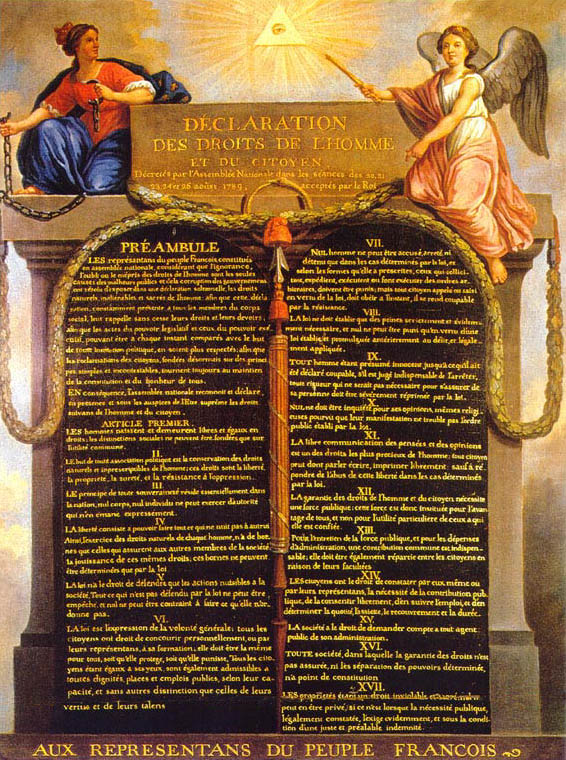 DÉCLARATION
DES DROITS DE L'HOMME
ET DU CITOYEN,
Décretés par l'Assemblée Nationale dans les séances des 20, 21
23, 24 et 26 aoûst 1789, acceptés par le Roi
PRÉAMBULE
LES représentans du peuple François, constitués
en assemblée nationale, considérant que l'ignorance,
l'oubli ou le mépris des droits de l'homme sont les seules
causes des malheurs publics et de la corruption des gouvernemens
ont résolu d'exposer dans une déclaration solemnelle, les droits
naturels, inaliénables et sacrés de l'homme; afin que cette décla-
ration, constamment présente a tous les membres du corps
social, leur rappelle sans cesse leurs droits et leurs devoirs;
afin que les actes du pouvoir legislatif et ceux du pouvoir exé-
cutif, pouvant être a chaque instant comparés avec le but
de toute institution politique, en soient plus respectés; afin que
les réclamations des citoyens, fondées désormais sur des princi-
pes simples et incontestables, tournent toujours au maintien
de la constitution et du bonheur de tous.
EN conséquence, l'assemblée nationale reconnoit et déclare,
en présence et sous les auspices de l'Être suprême les droits
suivans de l'homme et du citoyen.
ARTICLE PREMIER.
LES hommes naissent et demeurent libres et égaux en
droits; les distinctions sociales ne peuvent être fondées que sur
l'utilité commune.
II.
LE but de toute association politique est la conservation des droits
naturels et imprescriptibles de l'homme; ces droits sont la liberté,
la propriété, la sureté, et la résistance à l'oppression.
III.
LE principe de toute souveraineté réside essentiellement dans
la nation, nul corps, nul individu ne peut exercer d'autorité
qui n'en émane expressement.
IV.
LA liberté consiste a pouvoir faire tout ce qui ne nuit pas à autrui
Ainsi, l'exercice des droits naturels de chaque homme, n'a de bor-
nes que celles qui assurent aux autres membres de la société
la jouissance de ces mêmes droits; ces bornes ne peuvent
être déterminées que par la loi
V.
LA loi n'a le droit de défendre que les actions nuisibles à la
société. Tout ce qui n'est pas défendu par la loi ne peut être
empêché, et nul ne peut être contraint à faire ce qu'elle n'or-
donne pas.
VI.
LA loi est l'expression de la volonté générale; tous les
citoyens ont droit de concourir personnellement, ou par
leurs représentans, à sa formation; elle doit être la même
pour tous, soit qu'elle protege, soit qu'elle punisse. Tous les cito-
yens étant égaux à ses yeux, sont également admissibles à
toutes dignités, places et emplois publics, selon leur ca-
pacité, et sans autres distinction que celles de leurs
vertus et de leurs talens.
VII.
NUL homme ne peut être accusé, arreté, ni
détenu que dans les cas déterminés par la loi, et
selon les formes qu'elle a prescrites, ceux qui sollici-
tent, expédient, exécutent ou font exécuter des ordres ar-
bitraires, doivent être punis; mais tout citoyen appelé ou saisi
en vertu de la loi, doit obéir a l'instant, il se rend coupable
par la résistance.
VIII.
LA loi ne doit établir que des peines strictement et évidem-
ment nécessaire, et nul ne peut être puni qu'en vertu d'une
loi établie et promulguée antérierement au délit, et légale-
ment appliquée.
IX.
TOUT homme étant présumé innocent jusqu'a ce qu'il ait
été déclaré coupable, s'il est jugé indispensable de l'arrêter,
toute rigueur qui ne serait pas nécessaire pour s'assurer de
sa personne doit être sévèrement réprimée par la loi.
X.
NUL ne doit être inquiété pour ses opinions, mêmes religi-
euses pourvu que leur manifestation ne trouble pas l'ordre
public établi par la loi.
XI.
LA libre communication des pensées et des opinions
est un des droits les plus précieux de l'homme; tout citoyen
peut donc parler écrire, imprimer librement: sauf à ré-
pondre de l'abus de cette liberté dans les cas déterminés
par la loi.
XII.
LA garantie des droits de l'homme et du citoyen nécessite
une force publique; cette force est donc instituée pour l'avan-
tage de tous, et non pour l'utilité particuliere de ceux a qui
elle est confiée.
XIII.
Pour l'entretien de la force publique, et pour les dépenses
d'administration, une contribution commune est indispen-
sable; elle doit être également répartie entre les citoyens en
raison de leurs facultées
XIV.
LES citoyens ont le droit de constater par eux même ou
par leurs représentans, la nécessité de la contribution pub-
lique, de la consentir librement, d'en suivre l'emploi, et d'en
déterminer la quotité, l'assiette, le recouvrement et la durée.
XV.
LA société a le droit de demander compte a tout agent
public de son administration.
XVI.
TOUTE société, dans laquelle la garantie des droits n'est
pas assuré, ni les séparation des pouvoirs déterminée,
n'a point de constitution
XVII.
LES propriétés étant un droit inviolable et sacré, nul ne
peut en être privé, si ce n'est lorsque la nécessité publique,
légalement constatée, l'exige evidemment, et sous la condi-
tion d'une juste et préalable indemnité.
AUX REPRESENTANS DU PEUPLE FRANCOIS